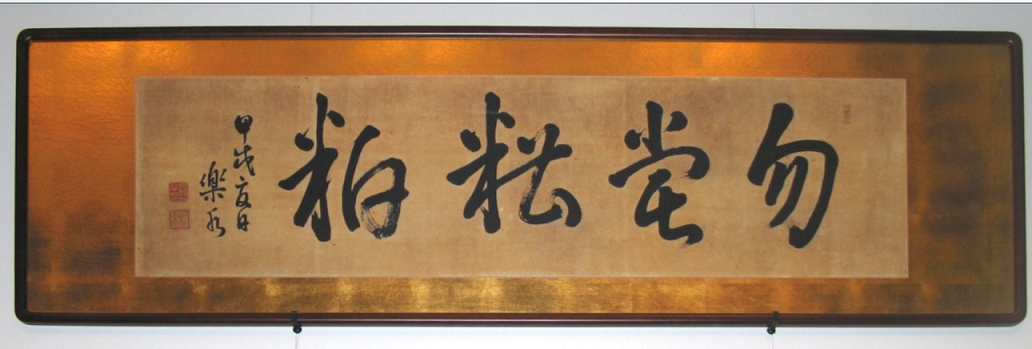 勿嘗糟粕
甲戌夏日
樂水